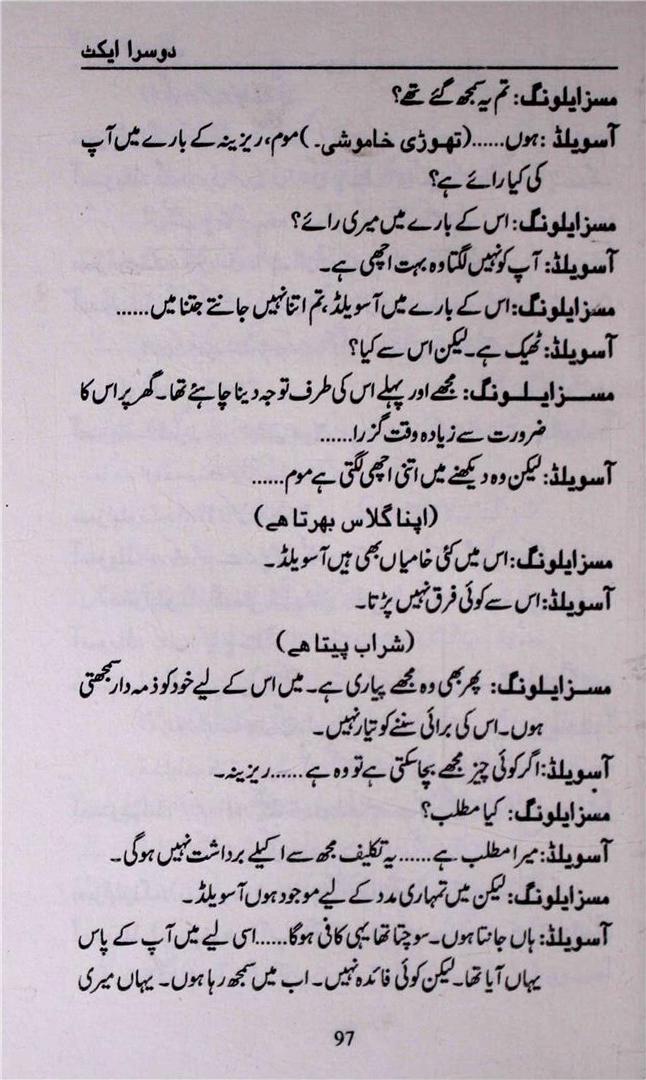 دوسرا ایکٹ
مسز ایلونگ: تم یہ سمجھ گئے تھے؟
آسویلڈ: ہوں......(تھوڑی خاموشی۔) موم، ریزینہ کے بارے میں آپ
کی کیا رائے ہے؟
مسز ایلونگ: اس کے بارے میں میری رائے؟
آسویلڈ: آپ کو نہیں لگتا وہ بہت اچھی ہے۔
مسز ایلونگ: اس کے بارے میں آسویلڈ، تم اتنا نہیں جانتے جتنا میں......
آسویلڈ: ٹھیک ہے۔ لیکن اس سے کیا؟
مسز ایلونگ: مجھے اور پہلے اس کی طرف توجہ دینا چاہئے تھا۔ گھر پر اس کا
ضرورت سے زیادہ وقت گزرا......
آسویلڈ: لیکن وہ دیکھنے میں اتنی اچھی لگتی ہے موم......
(اپنا گلاس بھرتا ھے)
مسز ایلونگ: اس میں کئی خامیاں بھی ہیں آسویلڈ۔
آسویلڈ: اس سے کوئی فرق نہیں پڑتا۔
(شراب پیتا ھے)
مسز ایلونگ: پھر بھی وہ مجھے پیاری ہے۔ میں اس کے لیے خود کو ذمہ دار سمجھتی
ہوں۔ اس کی برائی سننے کو تیار نہیں۔
آسویلڈ: اگر کوئی چیز مجھے بچا سکتی ہے تو وہ ہے......ریزینہ۔
مسز ایلونگ: کیا مطلب؟
آسویلڈ: میرا مطلب ہے......یہ تکلیف مجھ سے اکیلے برداشت نہیں ہوگی۔
مسز ایلونگ: لیکن میں تمہاری مدد کے لیے موجود ہوں آسویلڈ۔
آسویلڈ: ہاں جانتا ہوں۔ سوچتا تھا یہی کافی ہوگا......اسی لیے میں آپ کے پاس
یہاں آیا تھا۔ لیکن کوئی فائدہ نہیں۔ اب میں سمجھ رہا ہوں۔ یہاں میری
97